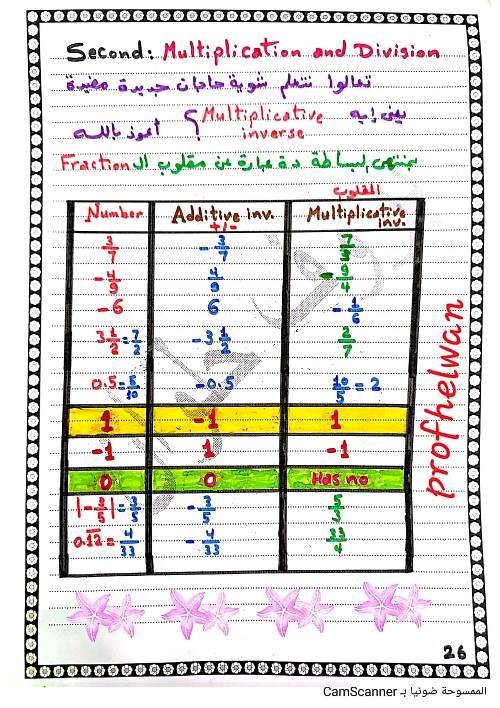 Second: Multiplication and Division
تعالوا نتعلم شوية حاجات جديدة مفيدة
يعني إيه Multiplicative inverse ؟ أعوذ بالله
بمنتهى البساطة دة عبارة عن مقلوب ال Fraction
المقلوب
Number Additive inv. +/- Multiplicative inv.
3/7 -3/7 7/3
-4/9 4/9 -9/4
-6 6 -1/6
3 1/2 = 7/2 -3 1/2 2/7
0.5 = 5/10 -0.5 10/5 = 2
1 -1 1
-1 1 -1
0 0 Has no
|-3/5| = 3/5 -3/5 5/3
0.1̅2̅ = 4/33 -4/33 33/4
profhelwan
26
الممسوحة ضوئيا بـ CamScanner